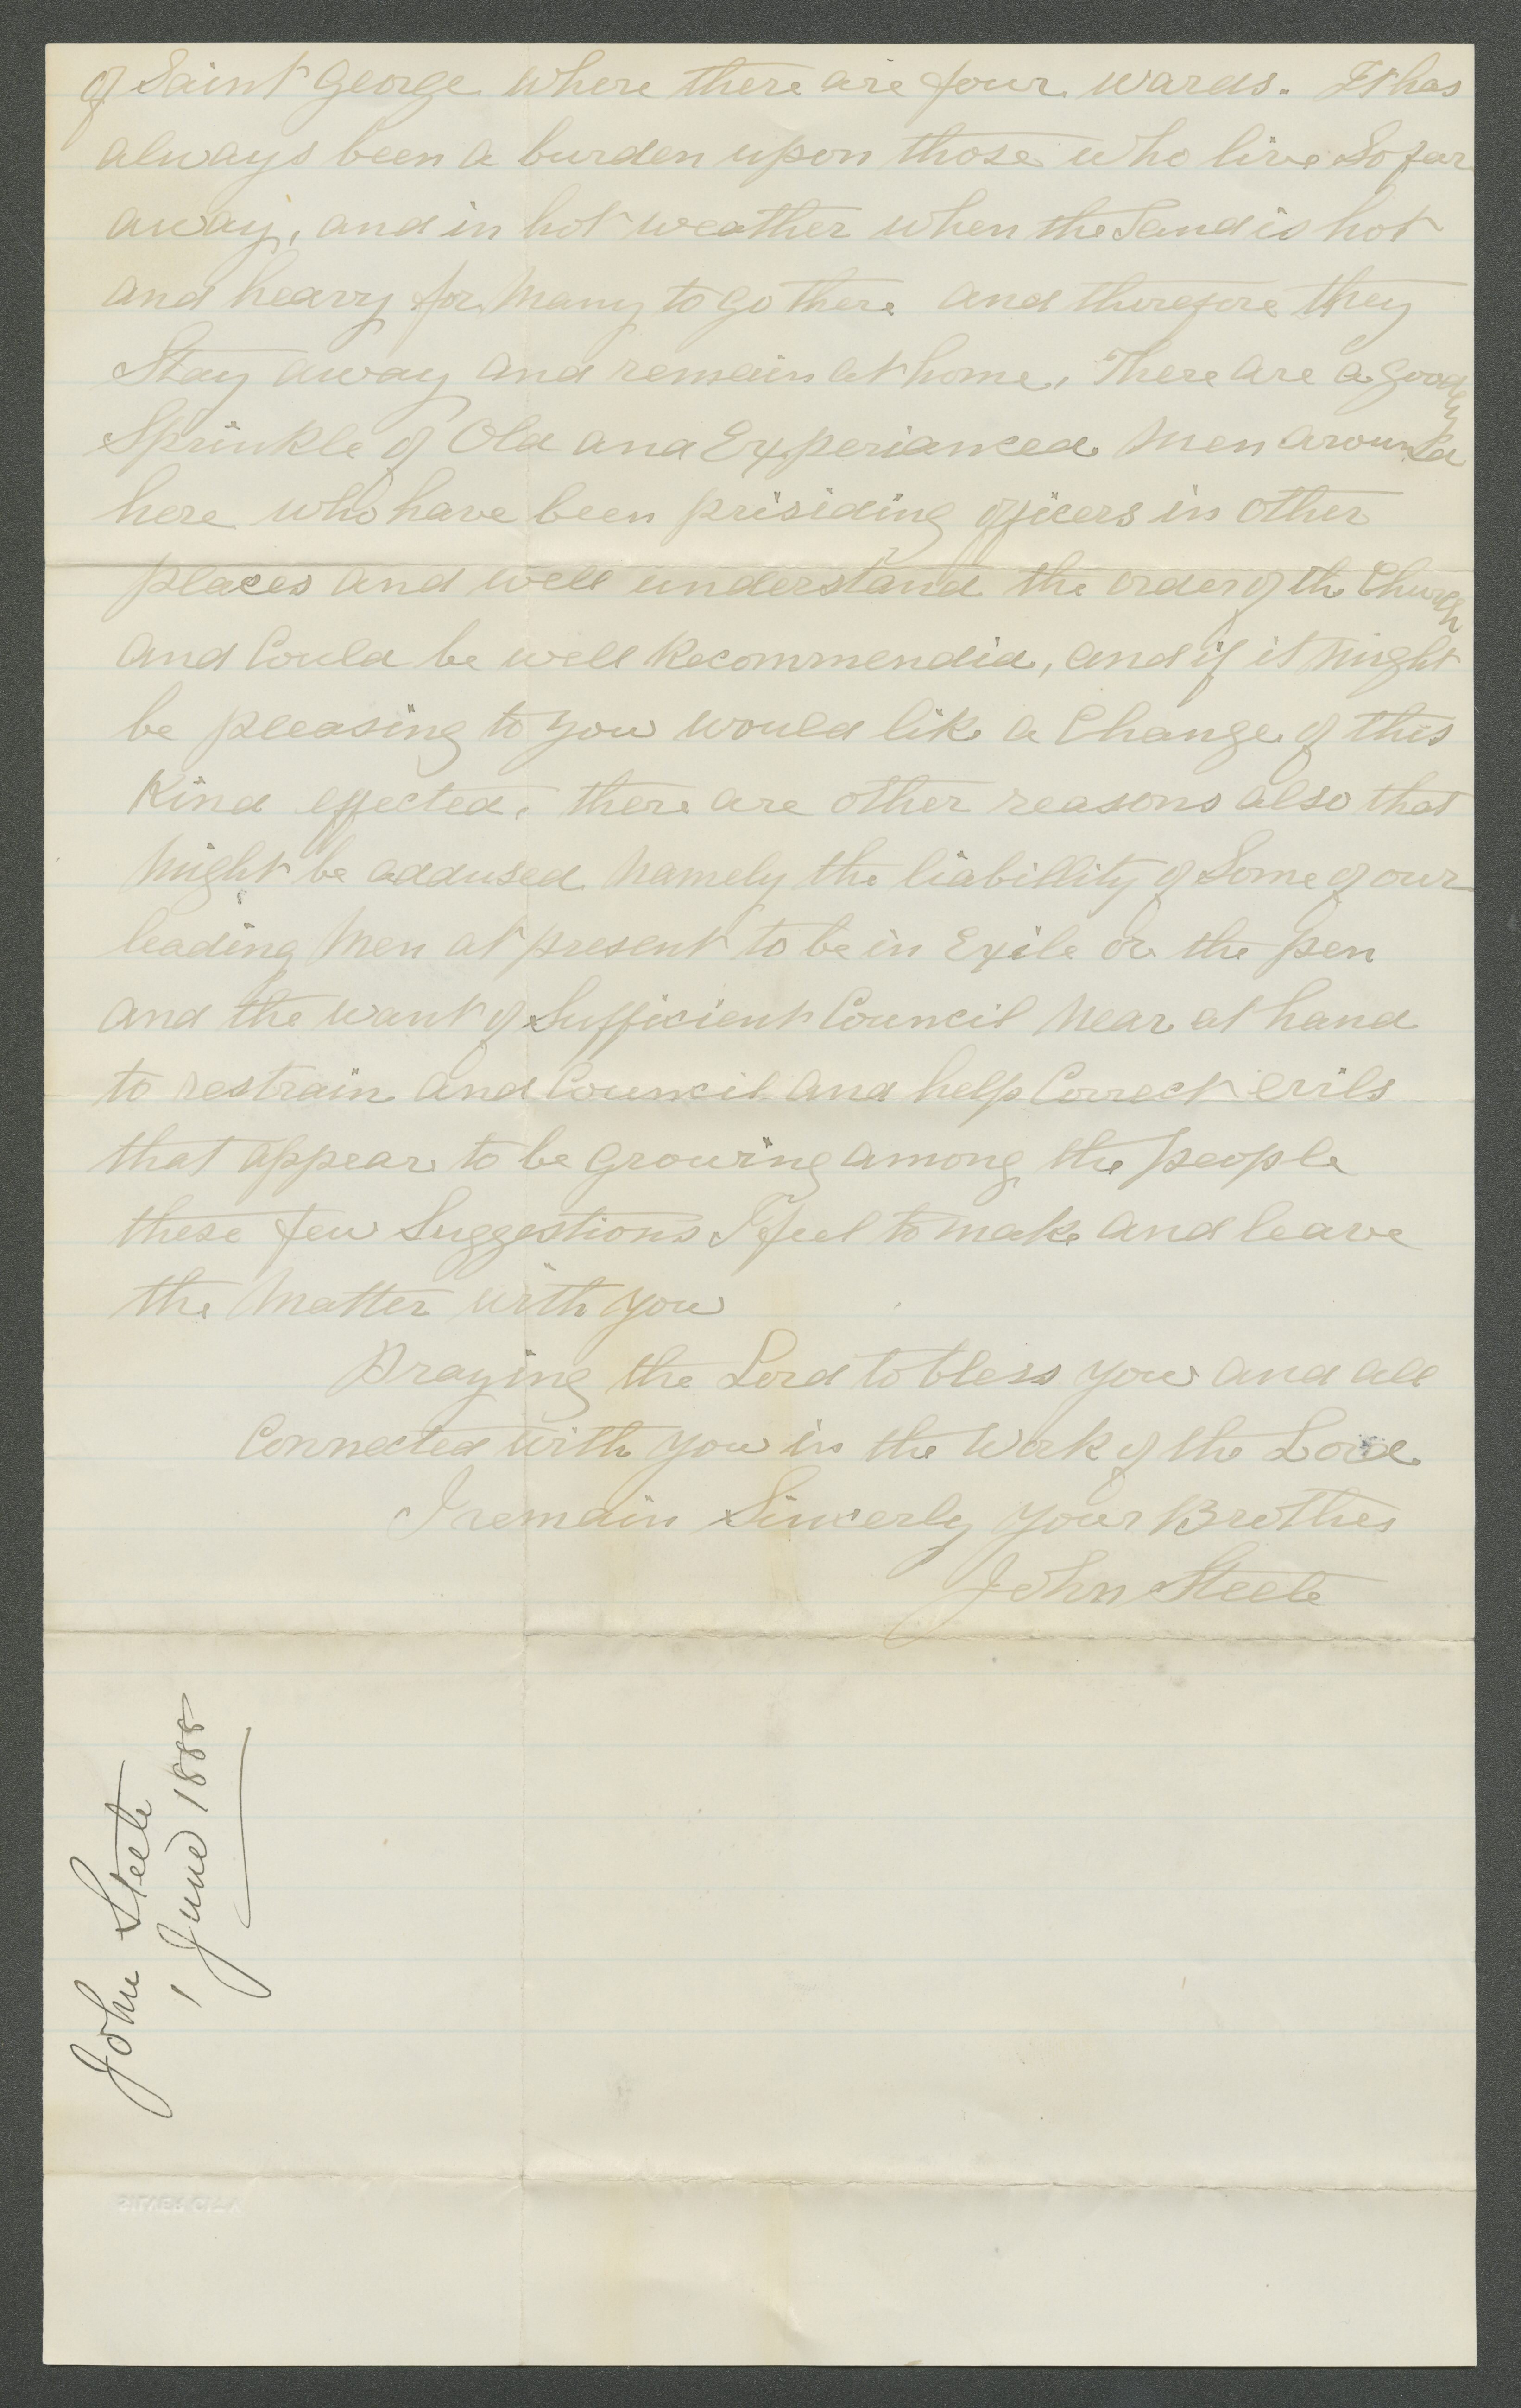 of Saint George where there are four wards. It has
always been a burden upon those who live So far
away, and in hot weather when the Sand is hot
and heavy for Many to go there and therefore they
Stay away and remain at home, There are a goodly
Sprinkle of Old and Experianced Men around
here who have been prisiding officers in other
places and well understand the order of the Church
and Could be well Recommendid, and if it might
be pleasing to you would like a Change of this
Kind effected, there are other reasons also that
Might be addused Namely the liabillity of Some of our
leading Men at present to be in Exile or the pen
and the want of Sufficient Council Near at hand
to restrain and Council and help Correct evils
that appear to be growing among the people
these few Suggestions I feel to make and leave
the Matter with you
Praying the Lord to bless you and all
Connected with you in the Work of the Lord
I remain Sincerly your Brother
John Steele
John Steele
1 June 1888
SILVER CITY